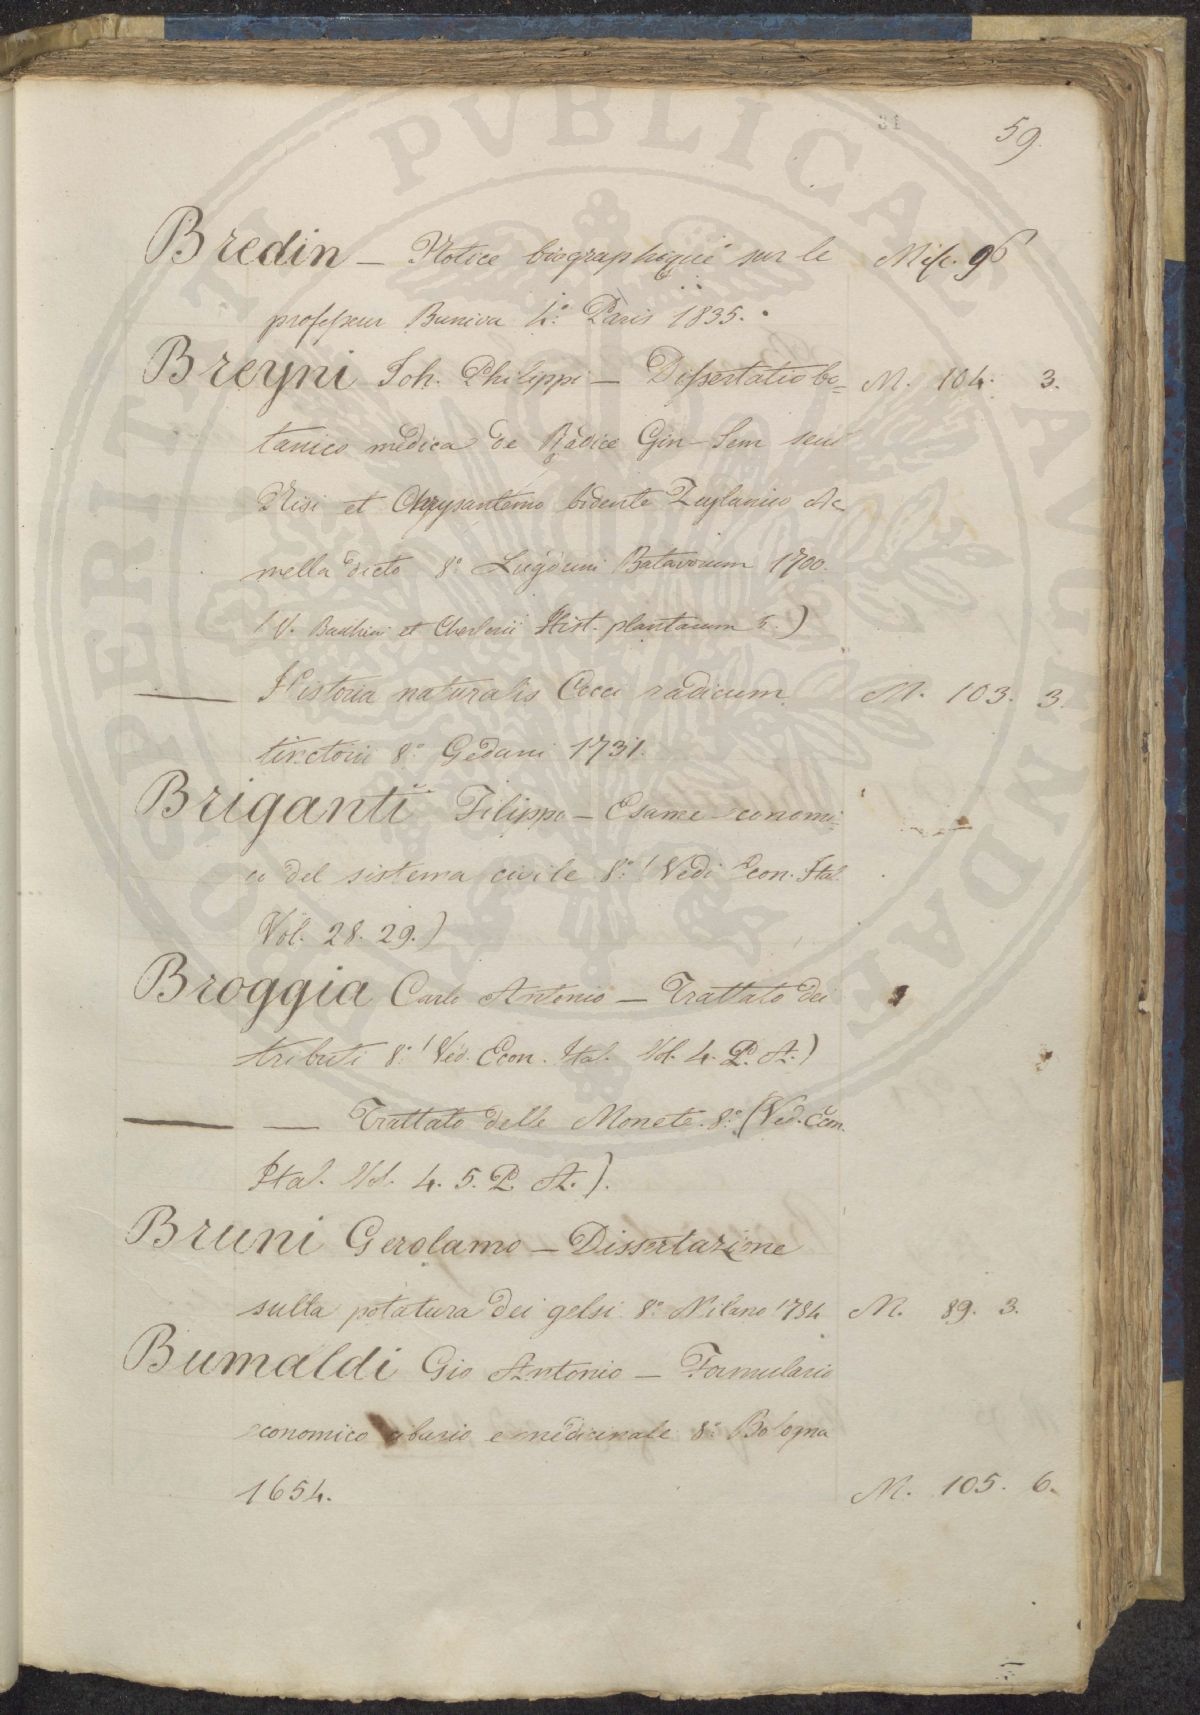 31
59.
Bredin — Notice biographique sur le Misc. 96
professeur Buniva 4.° Paris 1835.
Breyni Joh. Philippi — Dissertatio bo= M. 104. 3.
tanico medica de Radice Gin-Sem seu
Nisi et Chrysantemo bidente Zeylanico Ac
mella dicto 8.° Lugduni Batavorum 1700.
(V. Bauhini et Cherlerii Hist. plantarum
— Historia naturalis Cocci radicum M. 103. 3.
tinctorii 8.° Gedani 1731.
Briganti Filippo — Esame economi=
co del sistema civile 8.° (Vedi Econ. Ital.
Vol. 28. 29.)
Broggia Carlo Antonio — Trattato dei
tributi 8.° (Ved. Econ. Ital. Vol. 4. P. A.)
— — Trattato delle Monete. 8.° (Ved. Econ.
Ital. Vol. 4. 5. P. A.).
Bruni Gerolamo — Dissertazione
sulla potatura dei gelsi 8.° Milano 1784 M. 89. 3.
Bumaldi Gio Antonio — Formulario
economico cibario e medicinale 8.° Bologna
1654. M. 105. 6.
PUBLICAE
AUGENDAE
PROSPERITATI